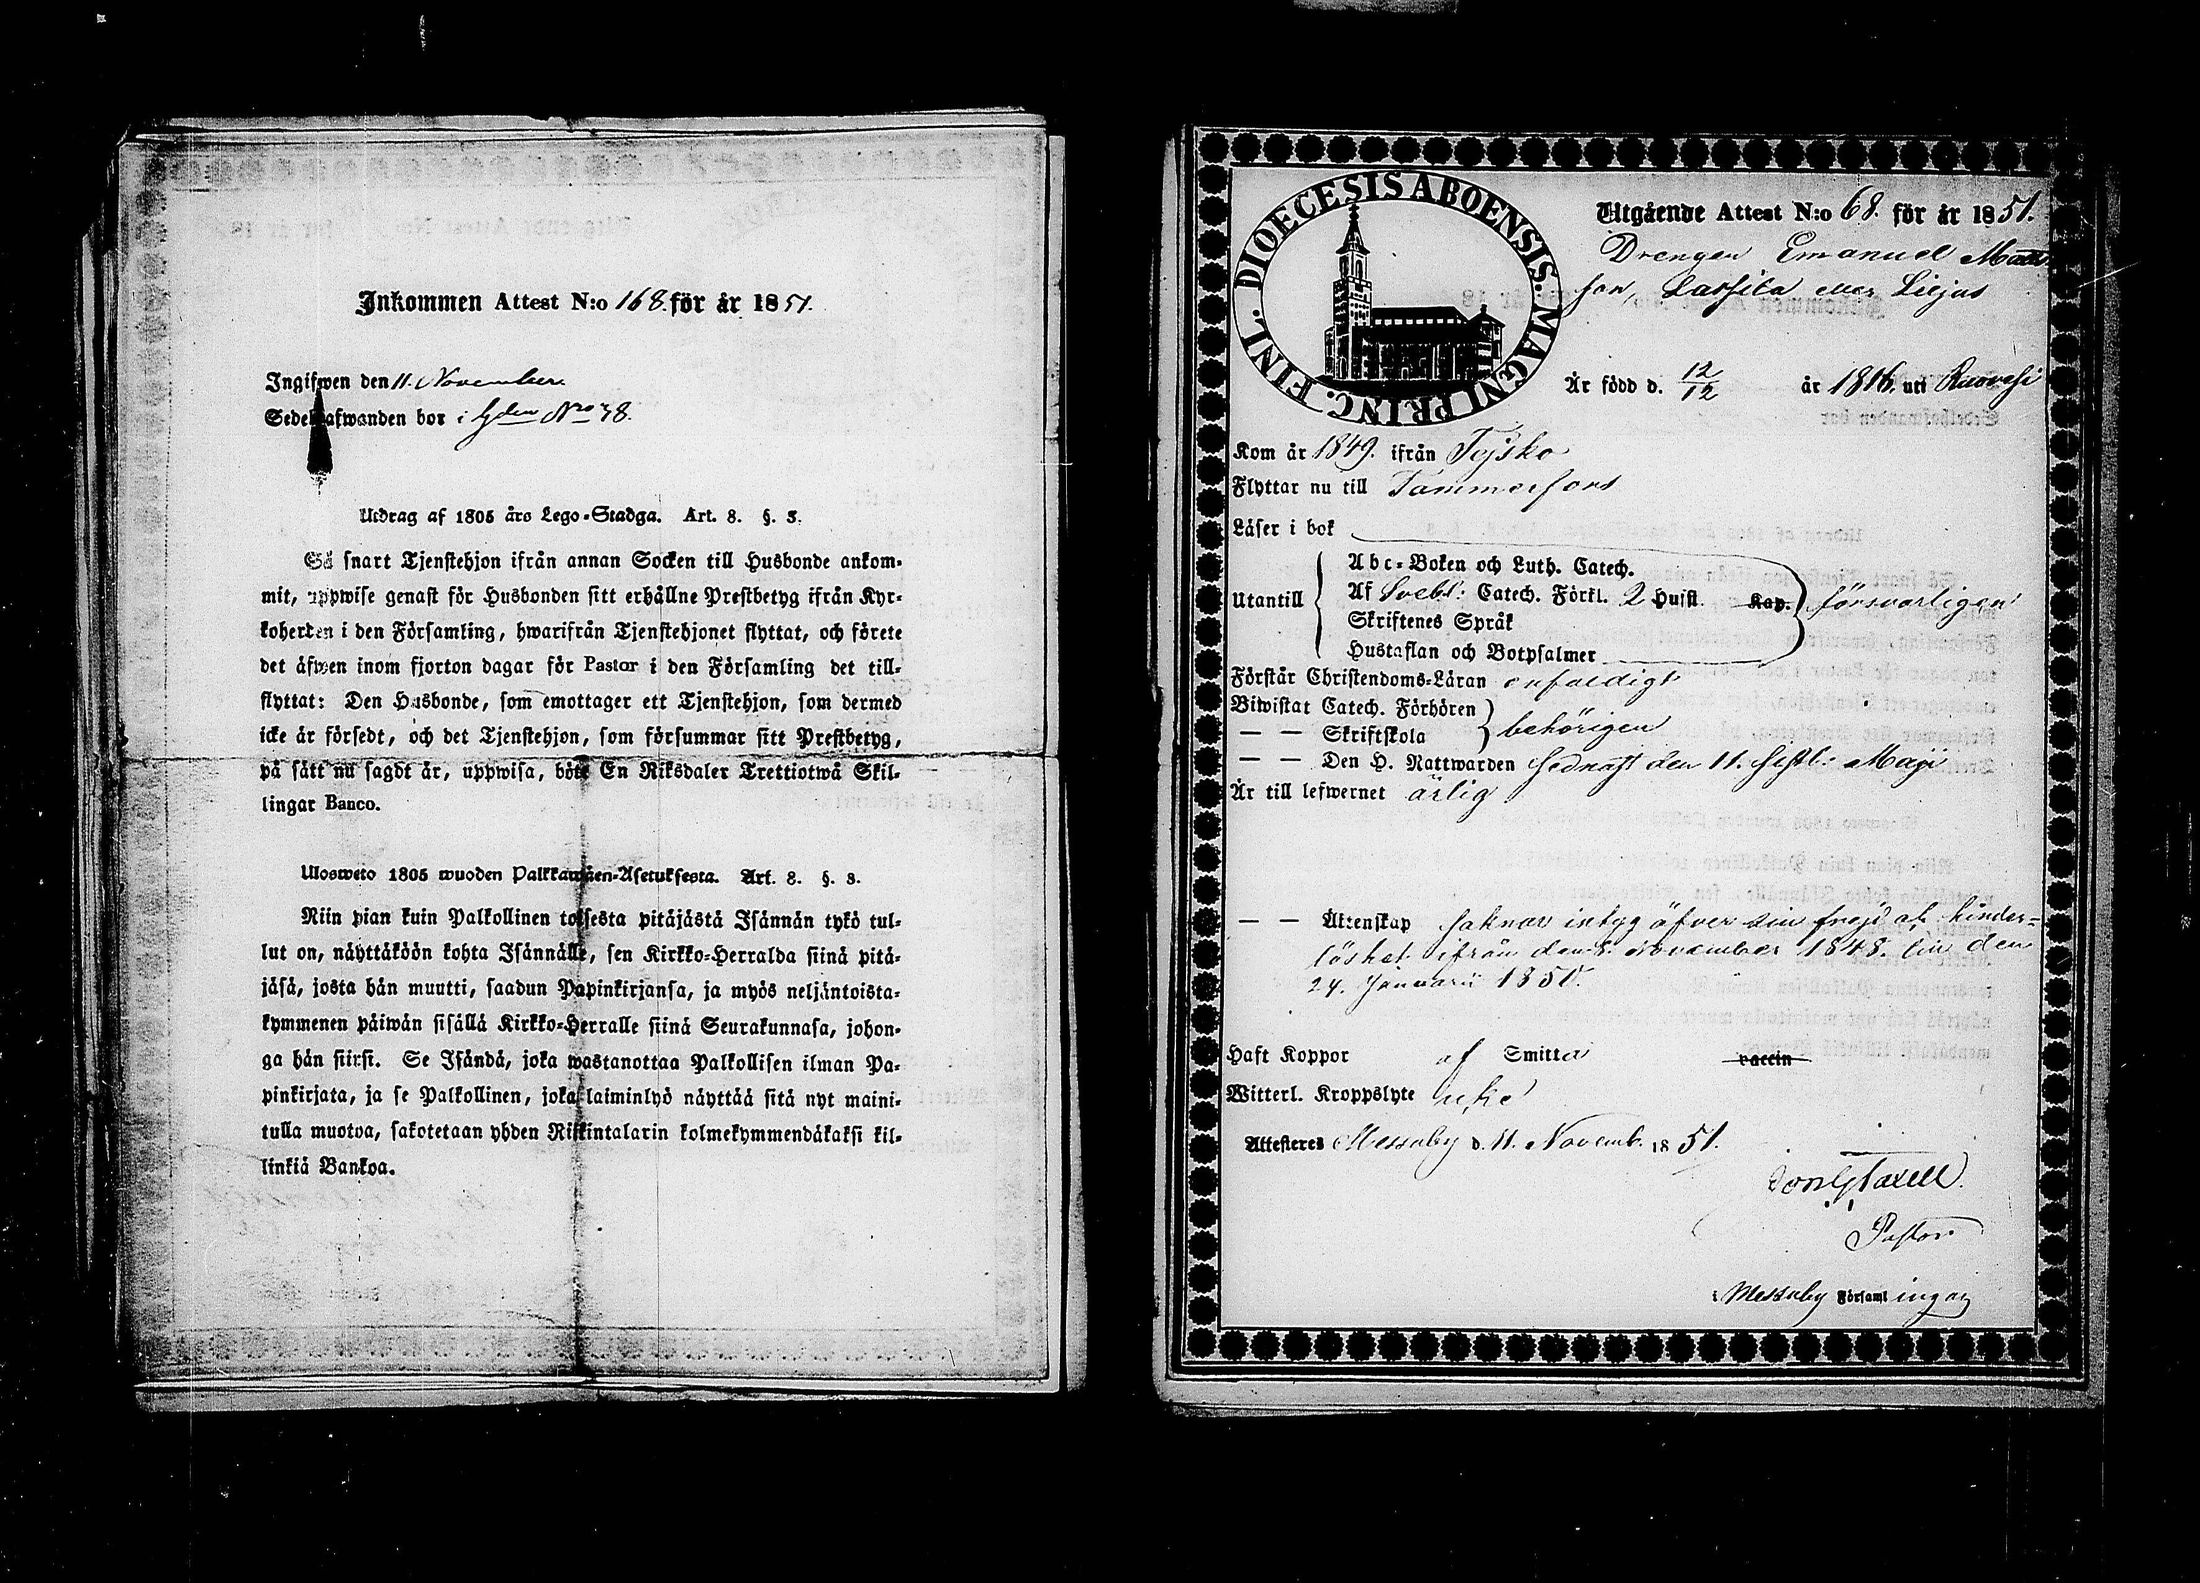 Inkommen Attest N:o 168. för år 1851.
Ingifwen den 11. November
Sedelhafwanden bor i Gden No 78.
Utdrag af 1805 års Lego-Stadga. Art. 8. §. 3.
Så snart Tjenstehjon ifrån annan Socken till Husbonde ankom-
mit, uppwise genast för Husbonden sitt erhållne Prestbetyg ifrån Kyr-
koherden i den Församling, hwarifrån Tjenstehjonet flyttat, och förete
det äfwen inom fjorton dagar för Pastor i den Församling det till-
flyttat: Den Husbonde, som emottager ett Tjenstehjon, som dermed
icke är försedt, och det Tjenstehjon, som försummar sitt Prestbetyg,
på sätt nu sagdt är, uppwisa, böte En Riksdaler Trettiotwå Skil-
lingar Banco.
Ulosweto 1805 wuoden Palkkawäen-Asetuksesta. Art. 8. §. 3.
Niin pian kuin Palkollinen toisesta pitäjästä Isännän tykö tul-
lut on, näyttäköön kohta Isännälle, sen Kirkko-Herralda siinä pitä-
jäsä, josta hän muutti, saadun Papinkirjansa, ja myös neljäntoista-
kymmenen päiwän sisällä Kirkko-Herralle siinä Seurakunnasa, johon-
ga hän siirsi. Se Isändä, joka wastanottaa Palkollisen ilman Pa-
pinkirjata, ja se Palkollinen, joka laiminlyö näyttää sitä nyt maini-
tulla muotoa, sakotetaan yhden Riikintalarin kolmekymmendäkaksi kil-
linkiä Bankoa.
DIOECESIS ABOENSIS. MAGNI PRINC. FINL.
Utgående Attest N:o 68. för år 1851.
Drengen Emanuel Matts
son, Lassila eller Liljas
Är född d. 12/12 år 1816. uti Ruovesi
Kom år 1849. ifrån Tejsko
Flyttar nu till Tammerfors
Läser i bok
Abc-Boken och Luth. Catech.
Utantill Af Svebl: Catech. Förkl. 2 Hufst. Kap. försvarligen
Skriftenes Språk
Hustaflan och Botpsalmer
Förstår Christendoms-Läran enfaldigt
Biwistat Catech. Förhören
— — Skriftskola behörigen
— — Den H. Nattwarden sednast den 11. sistl: Maji
Är till lefwernet ärlig
— — Ältenskap saknar intyg öfver sin frejd och hinder-
löshet ifrån den 1. November 1848. till den
24. Januarii 1850.
Haft Koppor af Smitta vaccin
Witterl. Kroppslyte icke
Attesteres Messuby d. 11. Novemb. 1851.
Pastor
i Messuby Församlingen